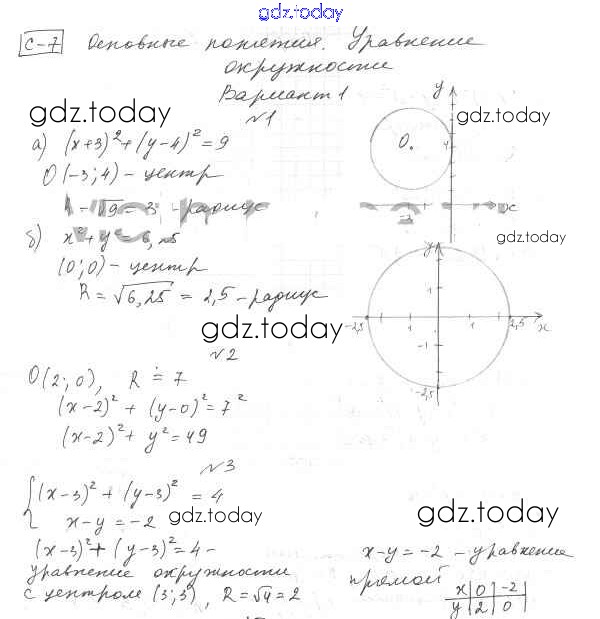 gdz.today
С-7 Основные понятия. Уравнение
окружности
Вариант 1
gdz.today
gdz.today
№1
а) (x+3)² + (y-4)² = 9
O(-3; 4) - центр
R = √9 = 3 - радиус
y
O.
4
-3
x
gdz.today
б) x² + y² = 6,25
(0; 0) - центр
R = √6,25 = 2,5 - радиус
y
1
-2,5
1
2,5
x
-1
-2,5
gdz.today
№2
O(2; 0), R = 7
(x-2)² + (y-0)² = 7²
(x-2)² + y² = 49
№3
{(x-3)² + (y-3)² = 4
x-y = -2
gdz.today
gdz.today
(x-3)² + (y-3)² = 4 -
уравнение окружности
с центром (3; 3), R = √4 = 2
x-y = -2 - уравнение
прямой
x | 0 | -2
y | 2 | 0